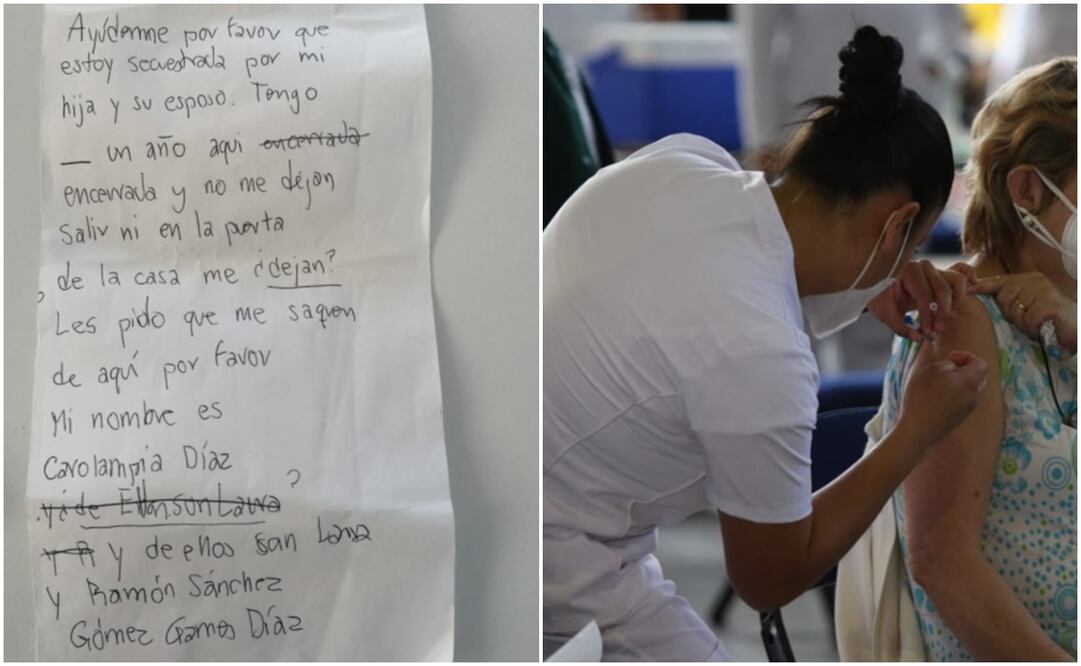 Ayúdenme por favor que
estoy secuestrada por mi
hija y su esposo. Tengo
_ un año aqui encerrada
encerrada y no me dejan
Salir ni en la puerta
de la casa me ¿dejan?
Les pido que me saquen
de aquí por favor
Mi nombre es
Carolampia Díaz
?
y de ellos son
y Ramón Sánchez
Gómez Games Díaz